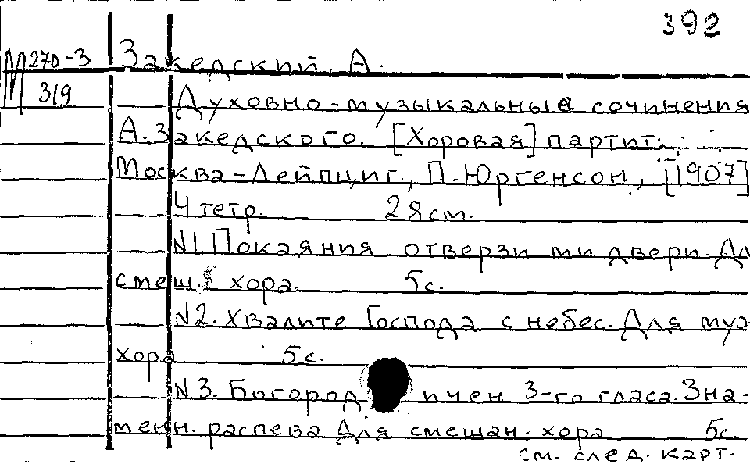 392
М 270-3
319
Закедский, А.
Духовно-музыкальные сочинения
А. Закедского. [Хоровая] партит.
Москва-Лейпциг, П. Юргенсон, [1907]
4 тетр. 28 см.
N1. Покаяния отверзи ми двери. Дл
смеш. хора. 5с.
N2. Хвалите Господа с небес. Для муз
хора 5с.
N3. Богород ичен 3-го гласа. Зна-
менн. распева Для смешан. хора 5с.
см. след. карт.